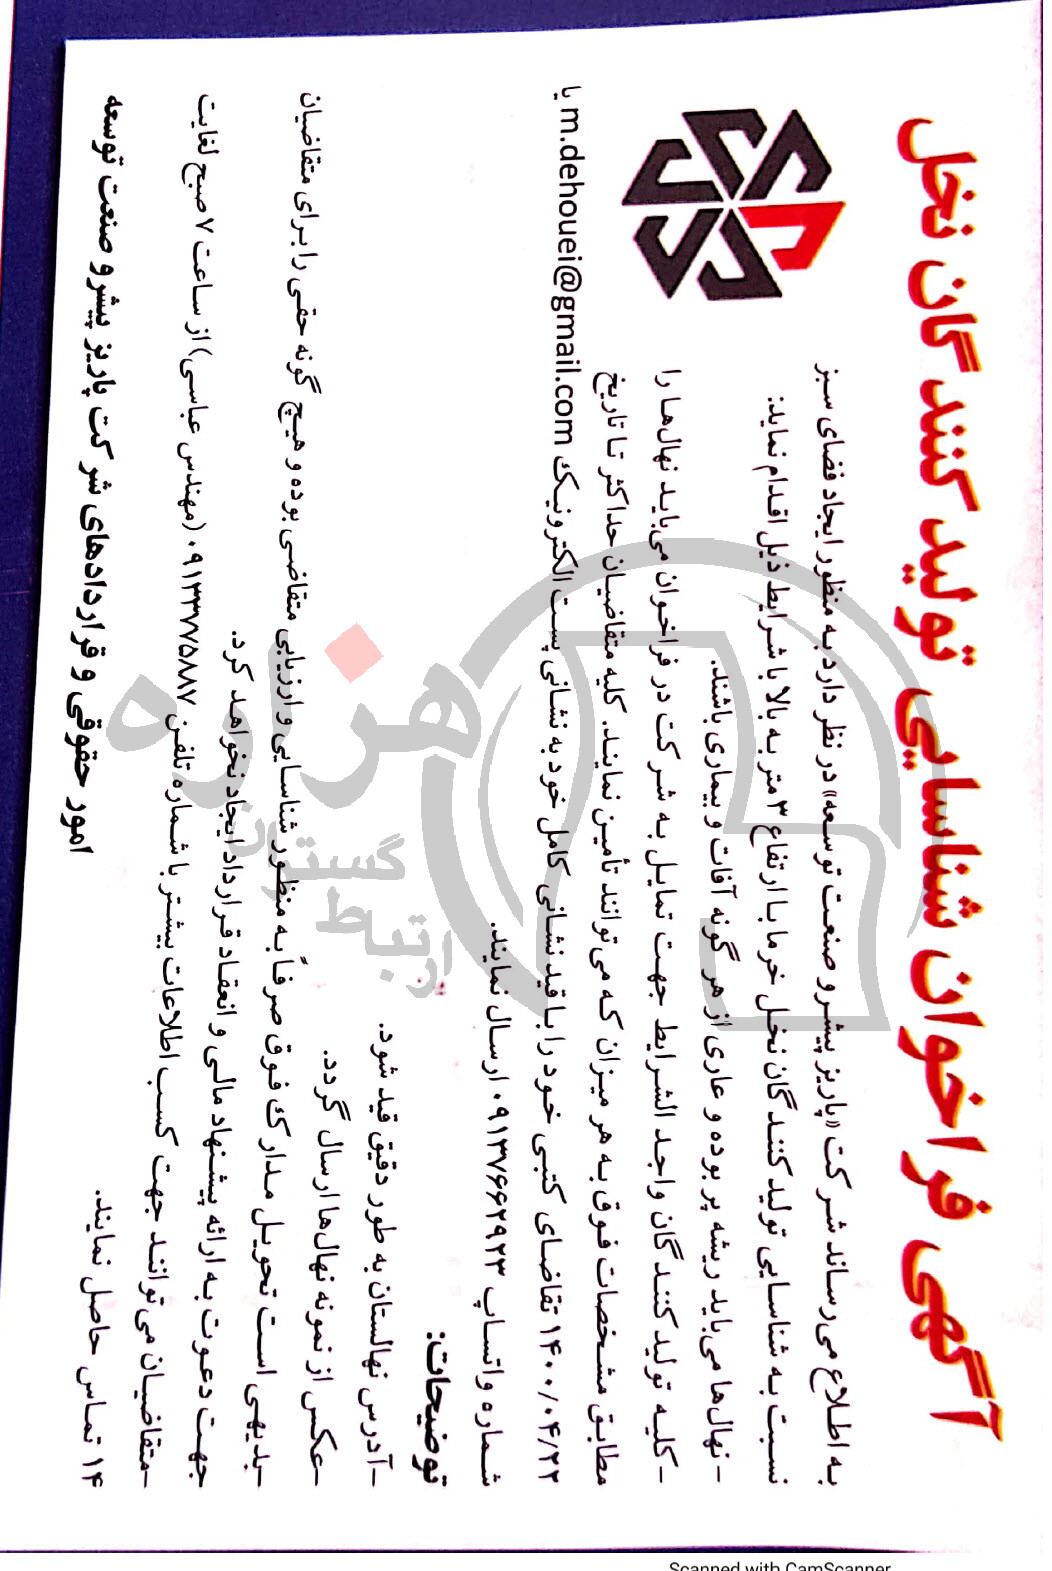 آگهی فراخوان شناسایی تولید کنندگان نخل
به اطلاع می‌رساند شرکت «پاریز پیشرو صنعت توسعه» در نظر دارد به منظور ایجاد فضای سبز
نسبت به شناسایی تولید کنندگان نخل خرما با ارتفاع ۳ متر به بالا با شرایط ذیل اقدام نماید:
- نهال‌ها می‌باید ریشه پر بوده و عاری از هر گونه آفات و بیماری باشند.
-کلیه تولیدکنندگان واجد الشرایط جهت تمایل به شرکت در فراخوان می‌باید نهال‌ها را
مطابق مشخصات فوق به هر میزان که می‌توانند تأمین نمایند. کلیه متقاضیان حداکثر تا تاریخ
۱۴۰۰/۰۴/۲۲ تقاضای کتبی خود را با قید نشانی کامل خود به نشانی پست الکترونیک m.dehouei@gmail.com یا
شماره واتساپ ۰۹۱۳۷۶۶۲۹۲۳ ارسال نمایند.
توضیحات:
-آدرس نهالستان به طور دقیق قید شود.
-عکس از نمونه نهال‌ها ارسال گردد.
-بدیهی است تحویل مدارک فوق صرفاً به منظور شناسایی و ارزیابی متقاضی بوده و هیچ گونه حقی را برای متقاضیان
جهت دعوت به ارائه پیشنهاد مالی و انعقاد قرارداد ایجاد نخواهد کرد.
-متقاضیان می‌توانند جهت کسب اطلاعات بیشتر با شماره تلفن ۰۹۱۳۳۷۷۵۸۸۷ (مهندس عباسی) از ساعت ۷ صبح لغایت
۱۴ تماس حاصل نمایند.
امور حقوقی و قراردادهای شرکت پاریز پیشرو صنعت توسعه
هزاره
ارتباط
گستران
Scanned with CamScanner